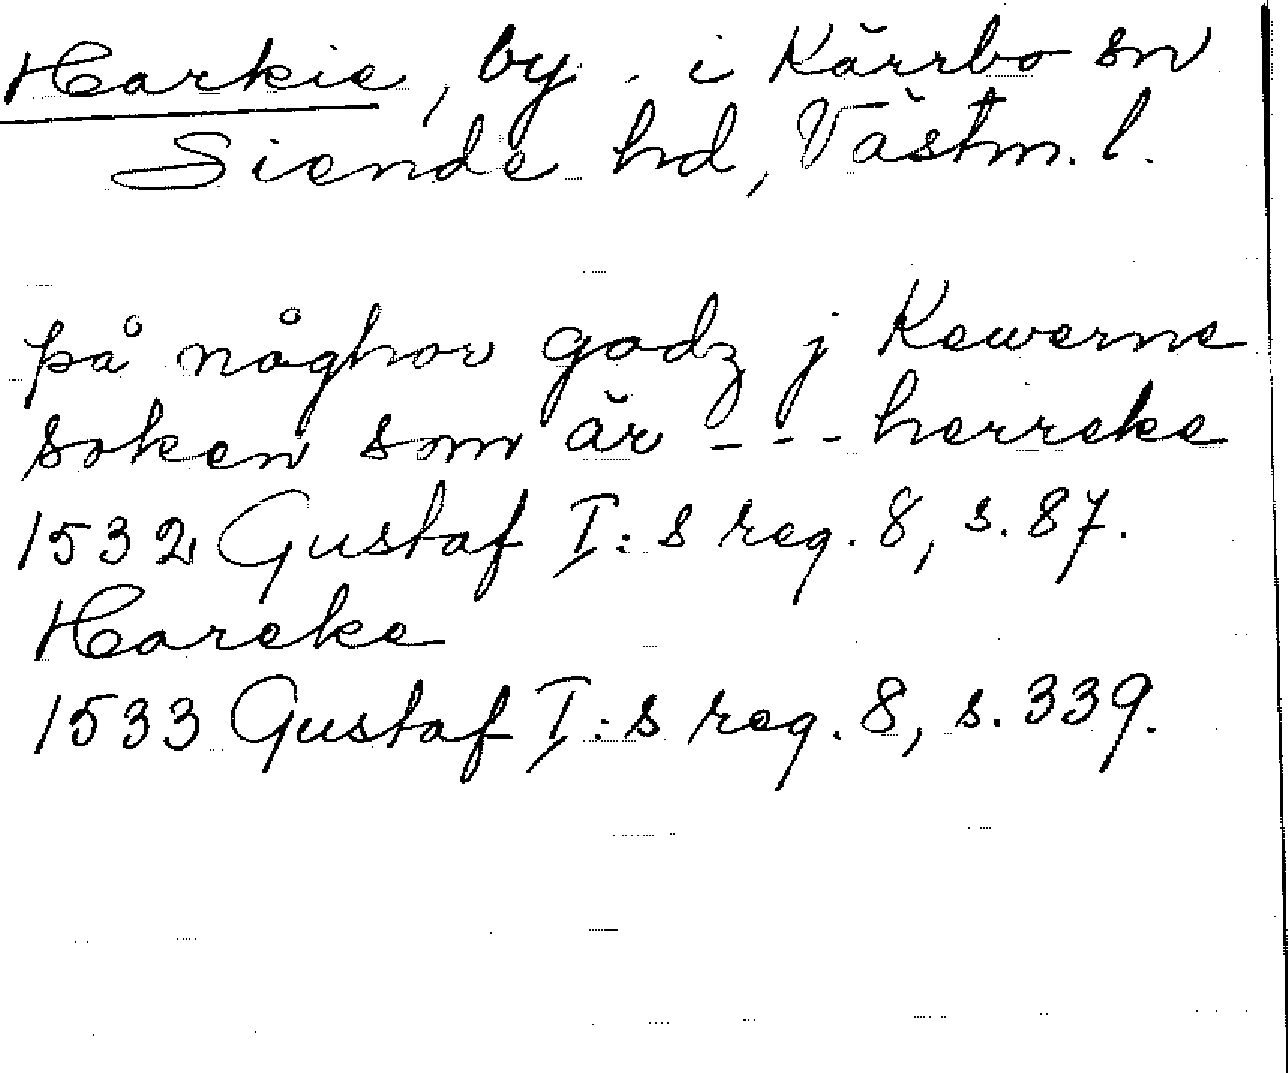 Harkie, by i Kärrbo sn
Siende hd, Västm. l.
på någhor godz j Kewerne
soken som är --- herreke
1532 Gustaf I:s reg. 8, s. 87.
Hareke
1533 Gustaf I:s reg. 8, s. 339.